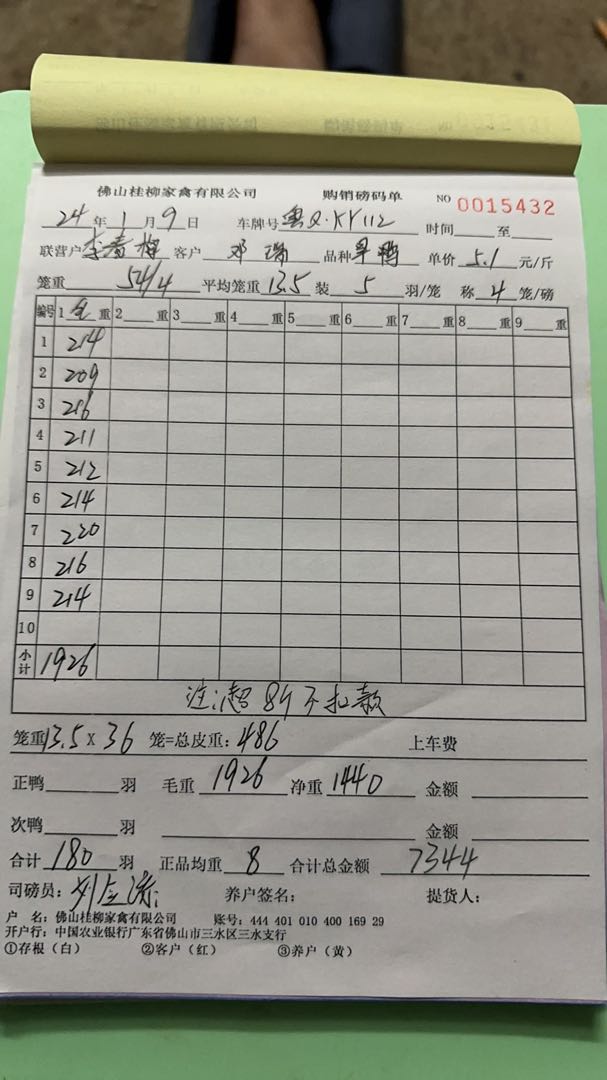 佛山桂柳家禽有限公司 购销磅码单 NO 0015432
24年1月9日 车牌号粤Q·KY112 时间 至
联营户李春梅 客户 邓瑞 品种旱鸭 单价5.1元/斤
笼重54/4 平均笼重13.5 装5羽/笼 称4笼/磅
编号 1毛重 2 重 3 重 4 重 5 重 6 重 7 重 8 重 9 重
1 214
2 209
3 216
4 211
5 212
6 214
7 220
8 216
9 214
10
小计 1926
注:超8斤不扣款
笼重13.5×36笼=总皮重:486 上车费
正鸭 羽 毛重1926净重1440 金额
次鸭 羽 金额
合计180羽 正品均重8合计总金额7344
司磅员: 养户签名: 提货人:
户 名:佛山桂柳家禽有限公司 账号:444 401 010 400 169 29
开户行:中国农业银行广东省佛山市三水区三水支行
①存根(白) ②客户(红) ③养户(黄)